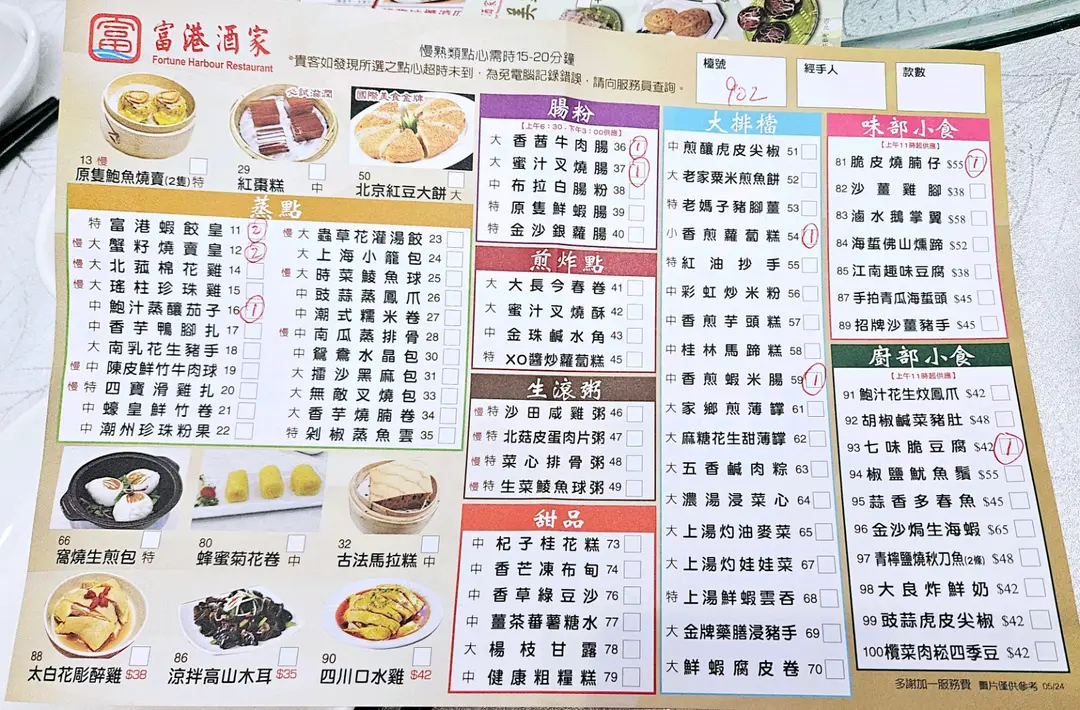 富港酒家
Fortune Harbour Restaurant
慢熟類點心需時15-20分鐘
*貴客如發現所選之點心超時未到,為免電腦記錄錯誤,請向服務員查詢。
檯號
902
經手人
款數
13 慢
原隻鮑魚燒賣(2隻)特
29
紅棗糕 中
國際美食金牌
50
北京紅豆大餅 大
蒸點
特 富港蝦餃皇 11 2
慢 大 蟹籽燒賣皇 12 2
慢 大 北菰棉花雞 14
慢 大 瑤柱珍珠雞 15
中 鮑汁蒸釀茄子 16 1
中 香芋鴨腳扎 17
大 南乳花生豬手 18
慢 中 陳皮鮮竹牛肉球 19
慢 特 四寶滑雞扎 20
中 蠔皇鮮竹卷 21
中 潮州珍珠粉果 22
慢 大 蟲草花灌湯餃 23
大 上海小籠包 24
慢 大 時菜鯪魚球 25
中 豉蒜蒸鳳爪 26
中 潮式糯米卷 27
慢 中 南瓜蒸排骨 28
中 鴛鴦水晶包 30
大 擂沙黑麻包 31
大 無敵叉燒包 33
大 香芋燒腩卷 34
特 剁椒蒸魚雲 35
66
窩燒生煎包 特
80
蜂蜜菊花卷 中
32
古法馬拉糕 中
88
太白花彫醉雞 $38
86
涼拌高山木耳 $35
90
四川口水雞 $42
腸粉
【上午6:30-下午3:00供應】
大 香茜牛肉腸 36 1
大 蜜汁叉燒腸 37 1
中 布拉白腸粉 38
特 原隻鮮蝦腸 39
特 金沙銀蘿腸 40
煎炸點
大 大長今春卷 41
大 蜜汁叉燒酥 42
中 金珠鹹水角 43
特 XO醬炒蘿蔔糕 45
生滾粥
慢 特 沙田咸雞粥 46
慢 特 北菇皮蛋肉片粥 47
慢 特 菜心排骨粥 48
慢 特 生菜鯪魚球粥 49
甜品
中 杞子桂花糕 73
中 香芒凍布甸 74
中 香草綠豆沙 76
中 薑茶蕃薯糖水 77
大 楊枝甘露 78
中 健康粗糧糕 79
大排檔
中 煎釀虎皮尖椒 51
大 老家粟米煎魚餅 52
特 老媽子豬腳薑 53
小 香煎蘿蔔糕 54 1
特 紅油抄手 55
中 彩虹炒米粉 56
中 香煎芋頭糕 57
中 桂林馬蹄糕 58
中 香煎蝦米腸 59 1
大 家鄉煎薄罉 61
大 麻糖花生甜薄罉 62
大 五香鹹肉粽 63
大 濃湯浸菜心 64
大 上湯灼油麥菜 65
大 上湯灼娃娃菜 67
特 上湯鮮蝦雲吞 68
大 金牌藥膳浸豬手 69
大 鮮蝦腐皮卷 70
味部小食
【上午11時起供應】
81 脆皮燒腩仔 $55 1
82 沙薑雞腳 $38
83 滷水鵝掌翼 $58
84 海蜇佛山燻蹄 $52
85 江南趣味豆腐 $38
87 手拍青瓜海蜇頭 $45
89 招牌沙薑豬手 $45
廚部小食
【上午11時起供應】
91 鮑汁花生炆鳳爪 $42
92 胡椒鹹菜豬肚 $48
93 七味脆豆腐 $42 1
94 椒鹽魷魚鬚 $55
95 蒜香多春魚 $45
96 金沙焗生海蝦 $65
97 青檸鹽燒秋刀魚(2條) $48
98 大良炸鮮奶 $42
99 豉蒜虎皮尖椒 $42
100 欖菜肉崧四季豆 $42
多謝加一服務費 圖片僅供參考 05/24